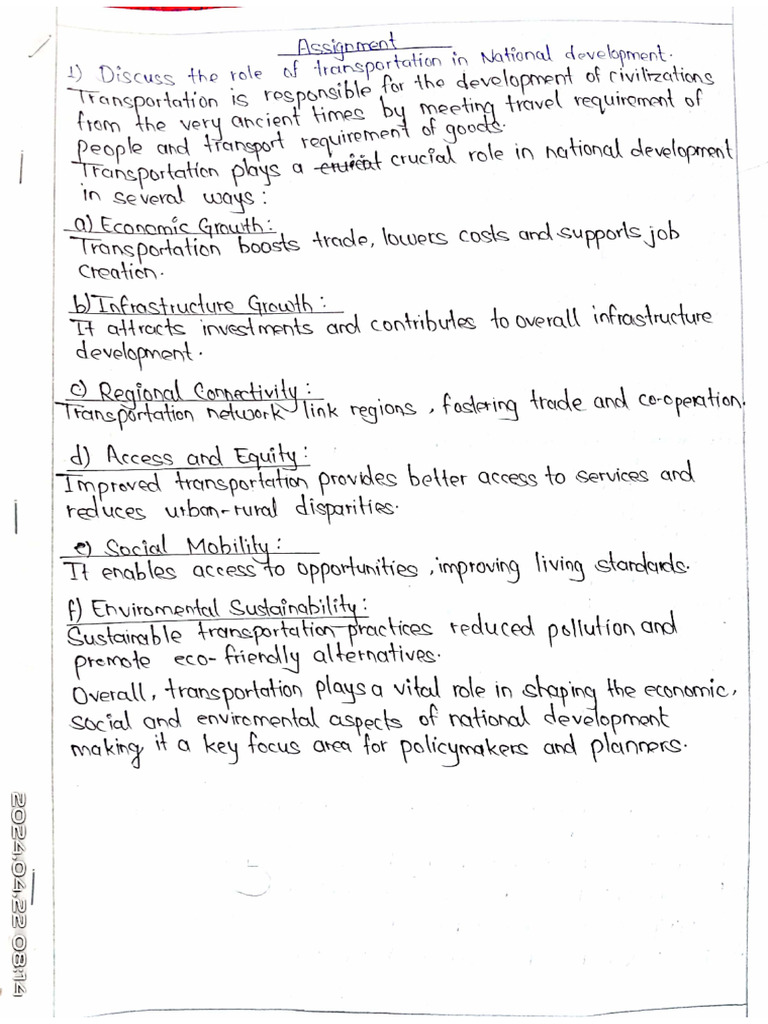 Assignment
1) Discuss the role of transportation in National development.
Transportation is responsible for the development of civilizations
from the very ancient times by meeting travel requirement of
people and transport requirement of goods.
Transportation plays a crucial role in national development
in several ways:
a) Economic Growth:
Transportation boosts trade, lowers costs and supports job
creation.
b) Infrastructure Growth:
It attracts investments and contributes to overall infrastructure
development.
c) Regional Connectivity:
Transportation network link regions, fostering trade and co-operation.
d) Access and Equity:
Improved transportation provides better access to services and
reduces urban-rural disparities.
e) Social Mobility:
It enables access to opportunities, improving living standards.
f) Enviromental Sustainability:
Sustainable transportation practices reduced pollution and
promote eco-friendly alternatives.
Overall, transportation plays a vital role in shaping the economic,
social and enviromental aspects of national development
making it a key focus area for policymakers and planners.
2024.04.22 08:14